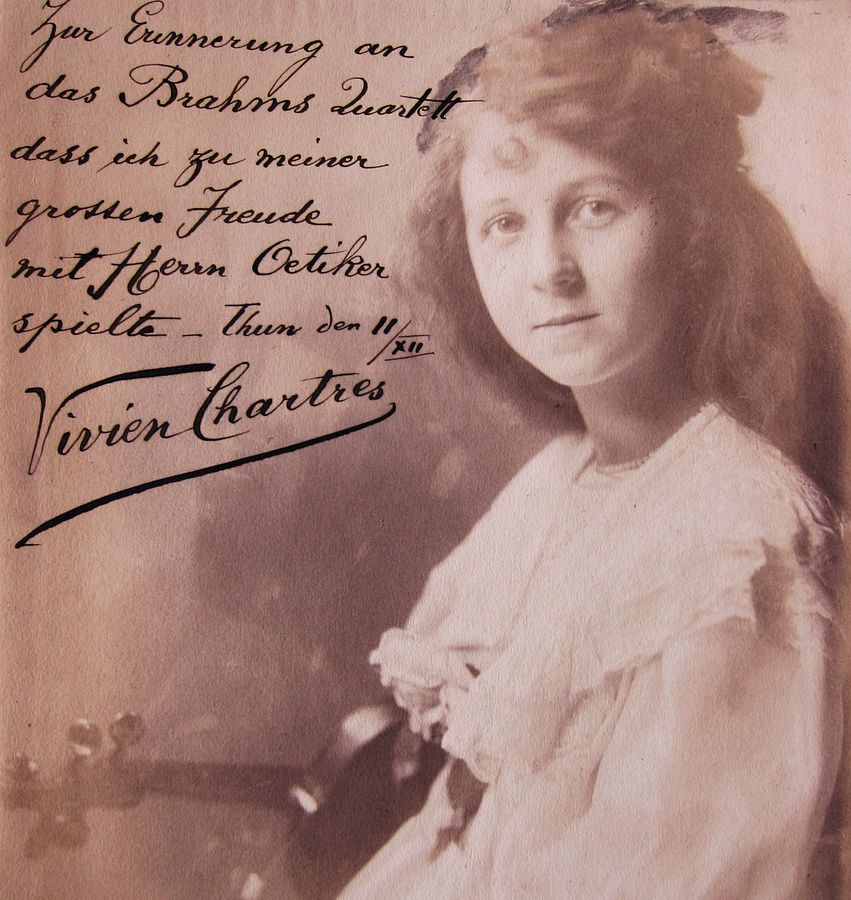 Zur Erinnerung an
das Brahms Quartett
dass ich zu meiner
grossen Freude
mit Herrn Oetiker
spielte – Thun den 11/XII
Vivien Chartres